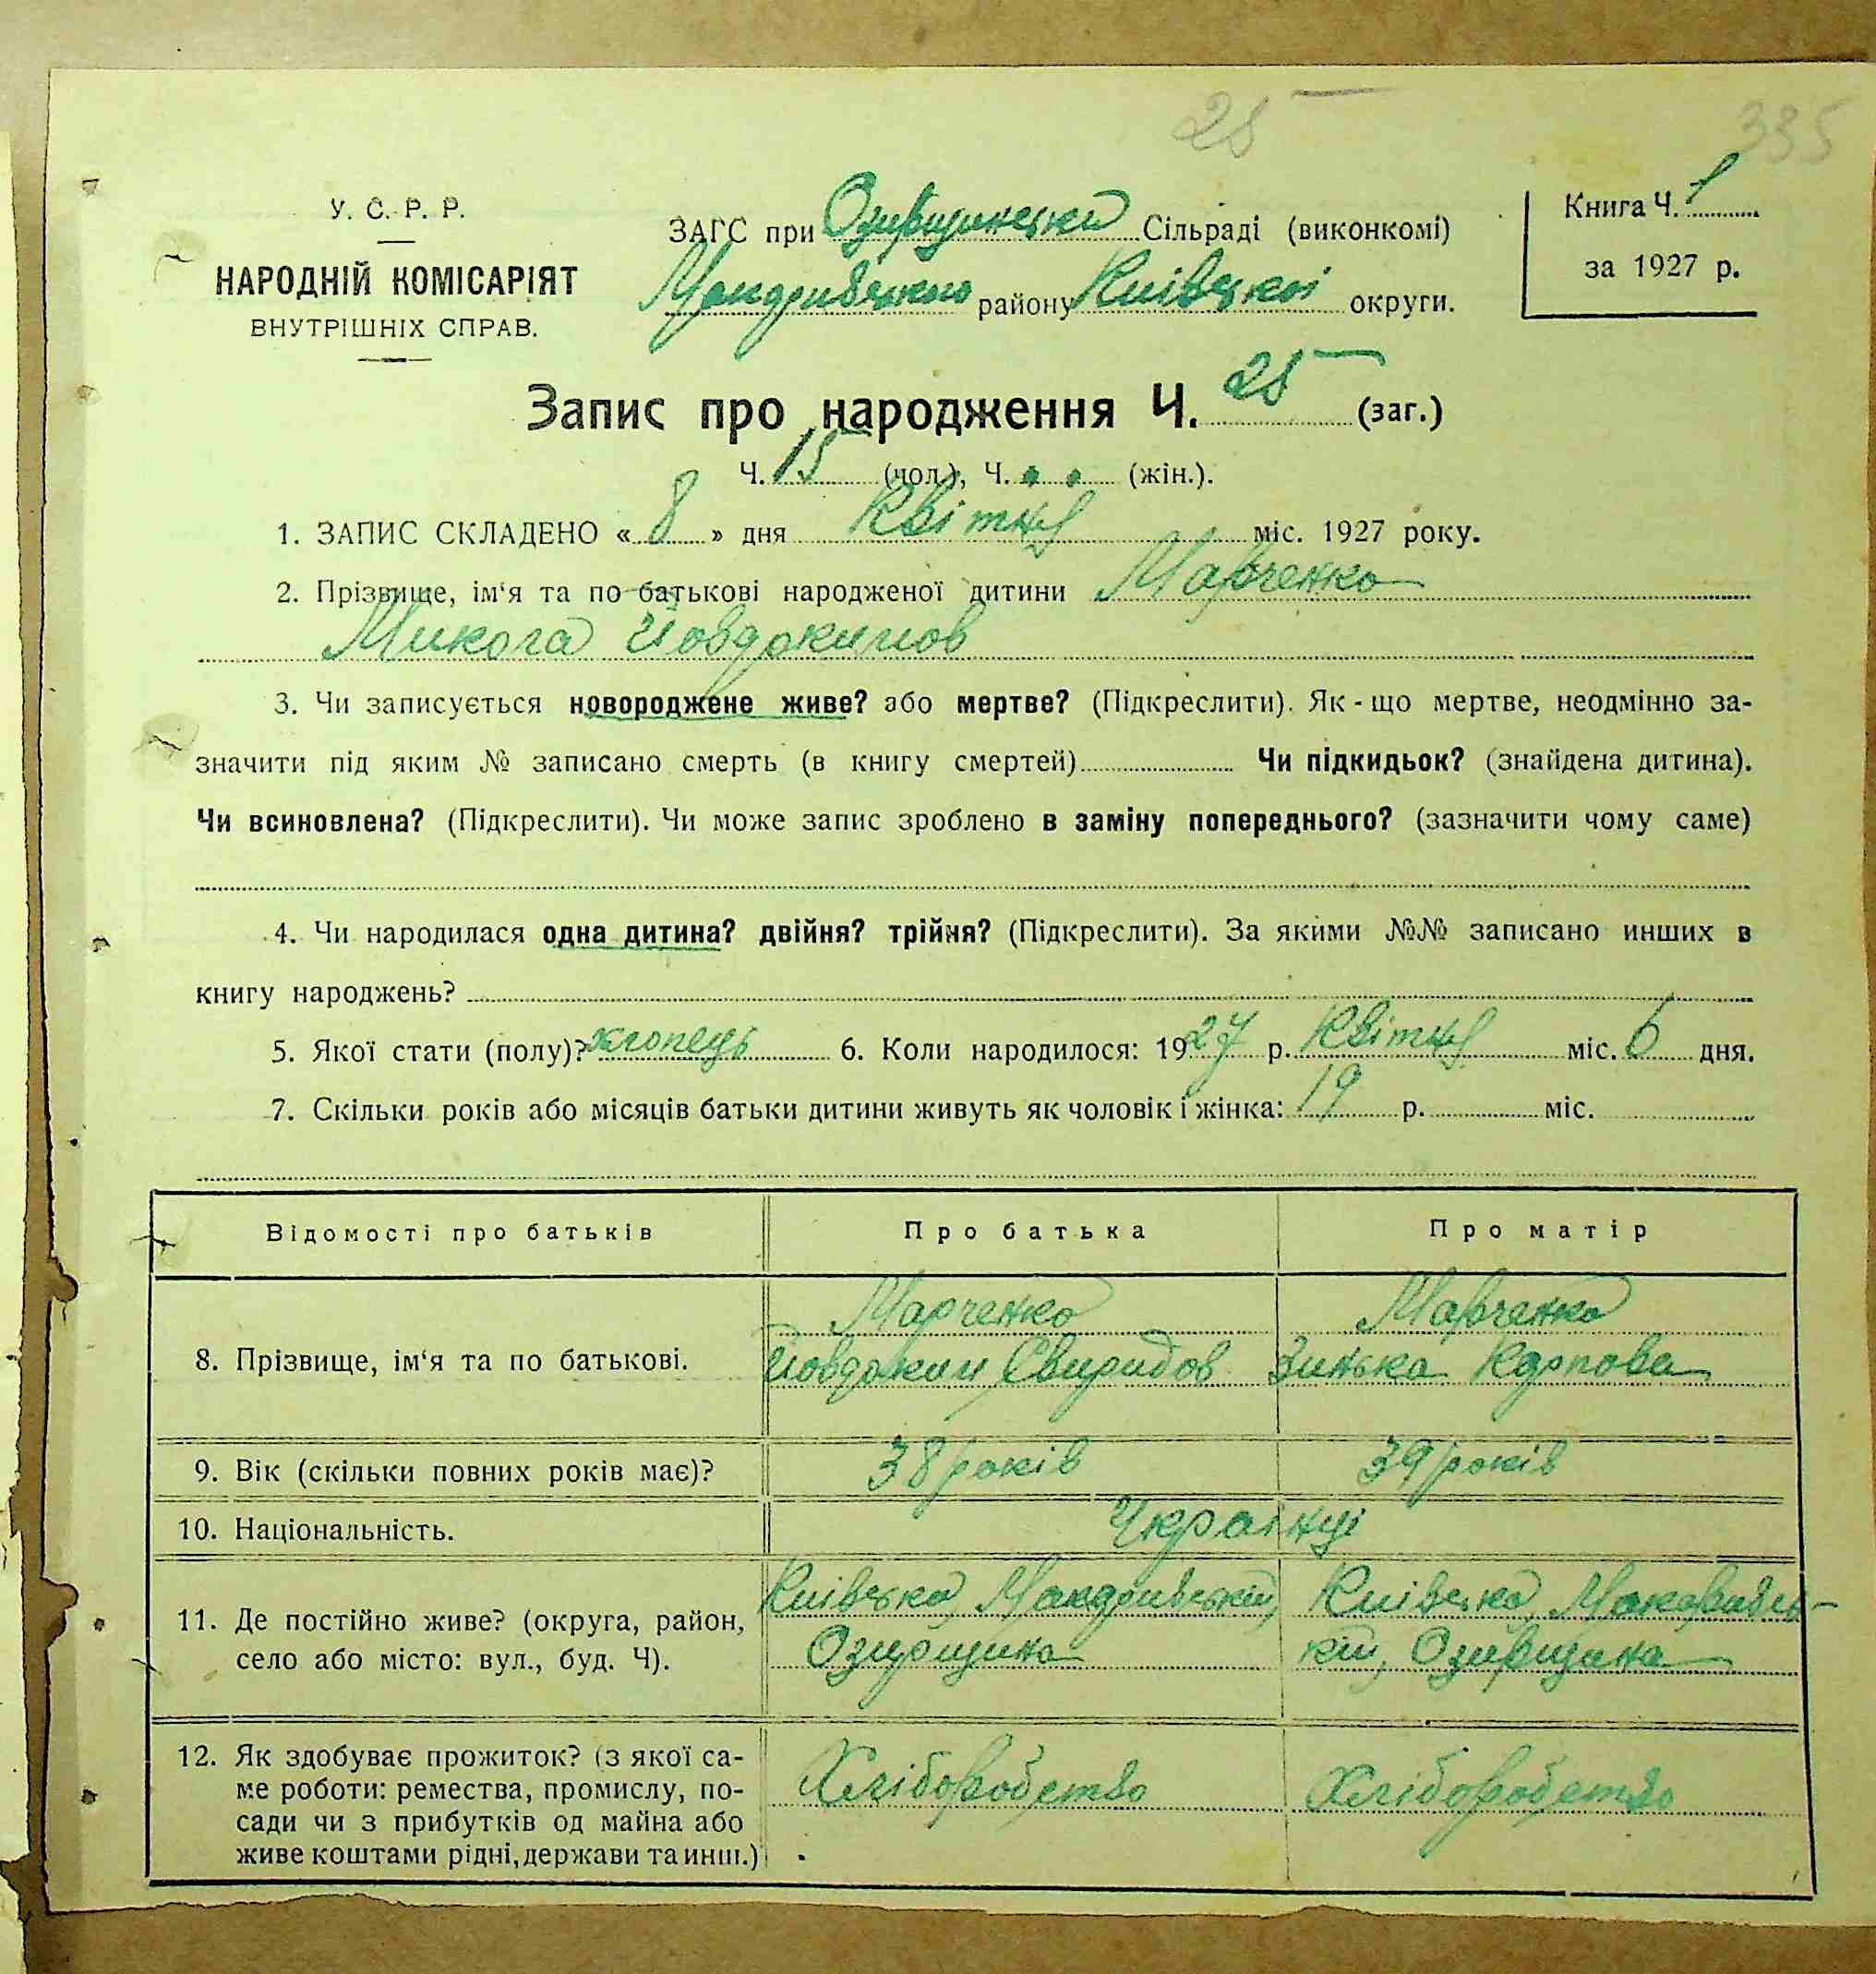 25
335
У. С. Р. Р.
НАРОДНІЙ КОМІСАРІЯТ
ВНУТРІШНІХ СПРАВ.
ЗАГС при Озирщинецкій Сільраді (виконкомі)
Макарівського району Київської округи.
Книга Ч. 1
за 1927 р.
Запис про народження Ч. 25 (заг.)
Ч. 15 (чол.), Ч. (жін.).
1. ЗАПИС СКЛАДЕНО « 8 » дня Квітня міс. 1927 року.
2. Прізвище, ім‘я та по батькові народженої дитини Марченко
Микола Йовдокимов
3. Чи записується новороджене живе? або мертве? (Підкреслити). Як-що мертве, неодмінно за-
значити під яким № записано смерть (в книгу смертей) Чи підкидьок? (знайдена дитина).
Чи всиновлена? (Підкреслити). Чи може запис зроблено в заміну попереднього? (зазначити чому саме)
4. Чи народилася одна дитина? двійня? трійня? (Підкреслити). За якими №№ записано инших в
книгу народжень?
5. Якої стати (полу)? хлопець 6. Коли народилося: 1927 р. Квітня міс. 6 дня.
7. Скільки років або місяців батьки дитини живуть як чоловік і жінка: 19 р. міс.
Відомості про батьків Про батька Про матір
8. Прізвище, ім‘я та по батькові. Марченко Йовдоким Свиридов Марченко Зинька Карпова
9. Вік (скільки повних років має)? 38 років 39 років
10. Національність. Українці
11. Де постійно живе? (округа, район,
село або місто: вул., буд. Ч).
Київська, Макарівський,
Озирщина
Київська, Макарівсь-
кий, Озирщина
12. Як здобуває прожиток? (з якої са-
ме роботи: ремества, промислу, по-
сади чи з прибутків од майна або
живе коштами рідні, держави та инш.)
Хліборобство
Хліборобство